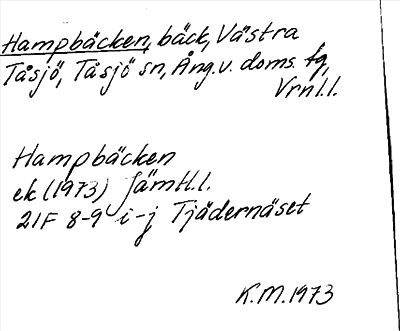 Hampbäcken, bäck, Västra
Tåsjö, Tåsjö sn, Ång.v. doms. fg,
Vrnl.l.
Hampbäcken
ek (1973) Jämtl.l.
21F 8-9 i-j Tjädernäset
K.M.1973